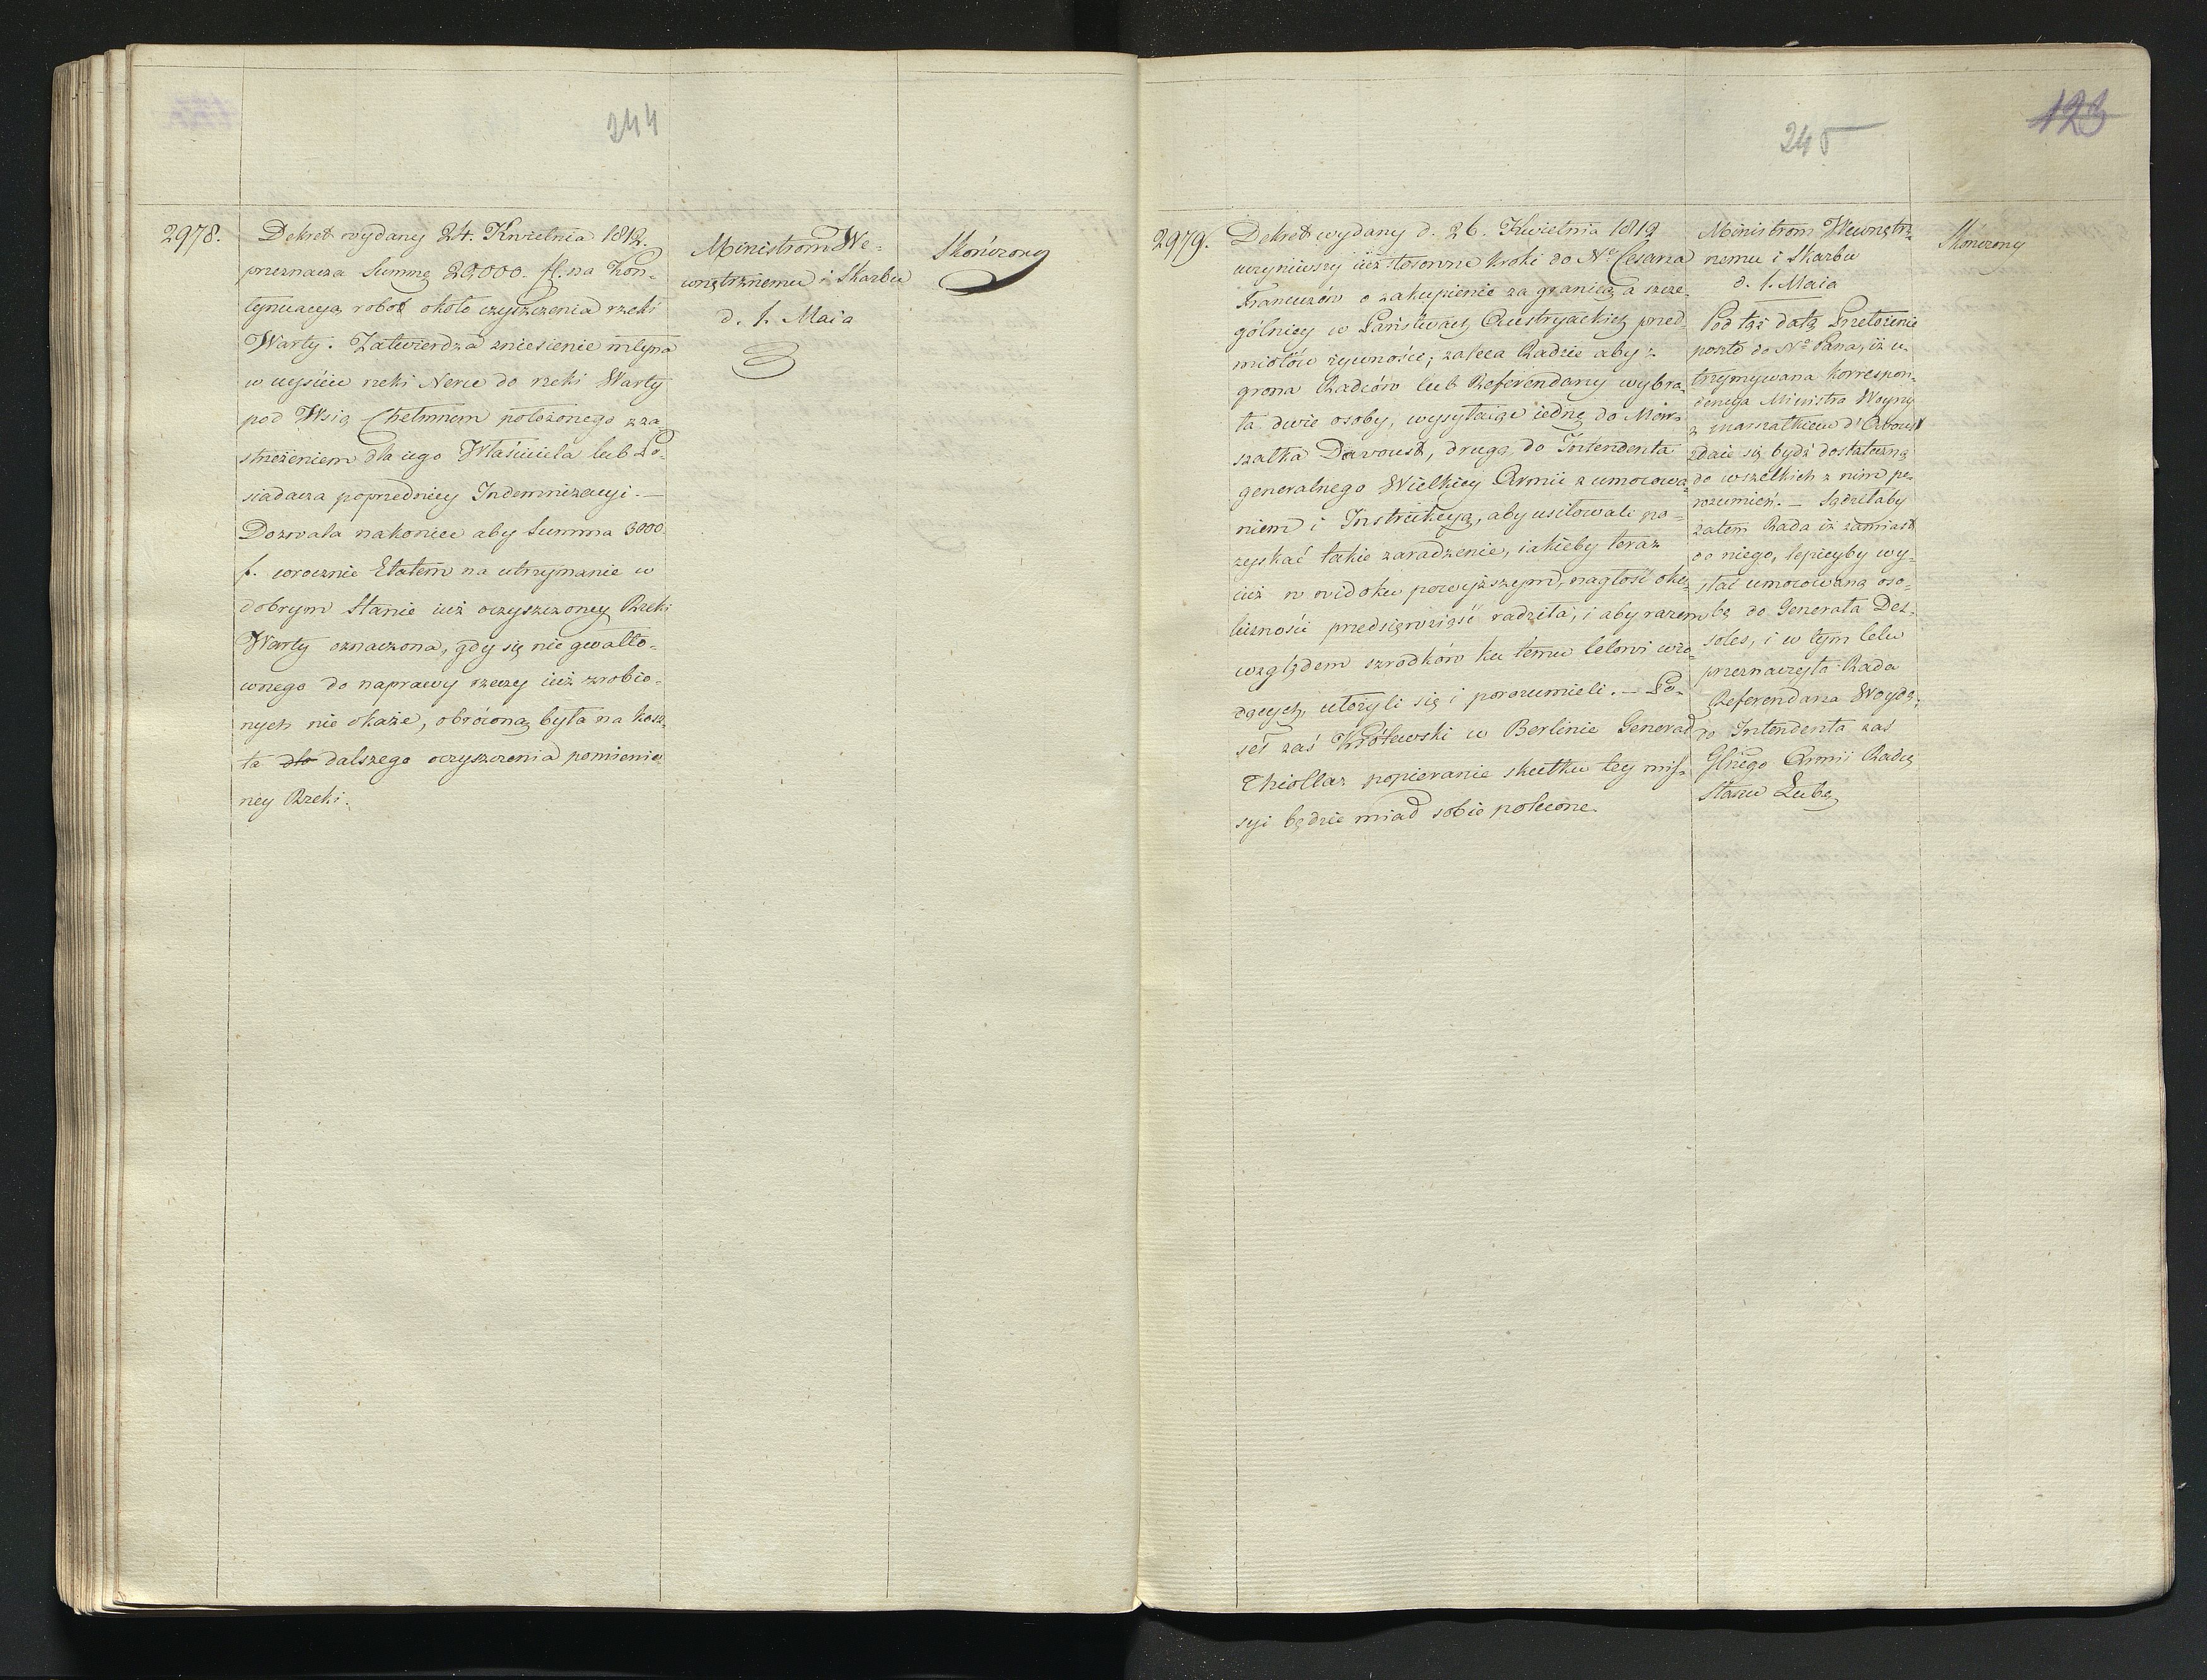 244
2978.
Dekret wydany 24. Kwietnia 1812.
przeznacza Summę 20,000. fl. na Kon-
tynuacyą robot około czyszczenia rzeki
Warty. Zatwierdza zniesienie młyna
w uyściu rzeki Neru do rzeki Warty
pod Wsią Chełmnem położonego z za-
strzeżeniem dla iego Właściciela lub Po-
siadacza poprzedniey Indemnizacyi. —
Dozwala nakoniec aby Summa 3000.
f. corocznie Etatem na utrzymanie w
dobrym Stanie iuż oczyszczoney Rzeki
Warty oznaczona, gdy się nic gwałto-
wnego do naprawy rzeczy iuż zrobio-
nych nie okaże, obróconą była na kosz-
ta dalszego oczyszczenia pomienio-
ney Rzeki.
Ministrom We-
wnętrznemu i Skarbu
d. 1. Maia
Skończony
245
123
2979.
Dekret wydany d. 26. Kwietnia 1812
uczyniwszy iuż stosowne kroki do Nº Cesarza
Francuzów o zakupienie za granicą a szcze-
gólniey w Państwach Austryackich przed-
miotów żywności; zaleca Radzie aby z
grona Radców lub Referendarzy wybra-
ła dwie osoby, wysyłaiąc iednę do Mar-
szałka Davoust, drugą do Intendenta
generalnego Wielkiey Armii z umocowa-
niem i Instrukcyą, aby usiłowali po-
zyskać takie zaradzenie, iakieby teraz
iuż w widoku powyższym, nagłość oko-
liczności przedsięwziąść radziła, i aby razem
względem szrodków ku temu celowi wio-
dących, ułożyli się i porozumieli. — Po-
seł zaś Królewski w Berlinie Generał
Thiollaz popieranie skutku tey mis-
syi będzie miał sobie polecone.
Ministrom Wewnętrz-
nemu i Skarbu
d. 1. Maia
Pod tąż datą Przełożenie
poszło do Nº Pana, iż u-
trzymywana korrespon-
dencya Ministra Woyny
z marszałkiem d'Avoust
zdaie się bydź dostateczną
do wszelkich z nim po-
rozumień. — Sądziłaby
zatem Rada iż zamiast
do niego, lepieyby wy-
słać umocowaną oso-
bę do Generała Des-
soles, i w tym celu
przeznaczyła Rada
Referendarza Woydę,
do Intendenta zaś
Glnego Armii Radcę
Stanu Lubę
Skończony